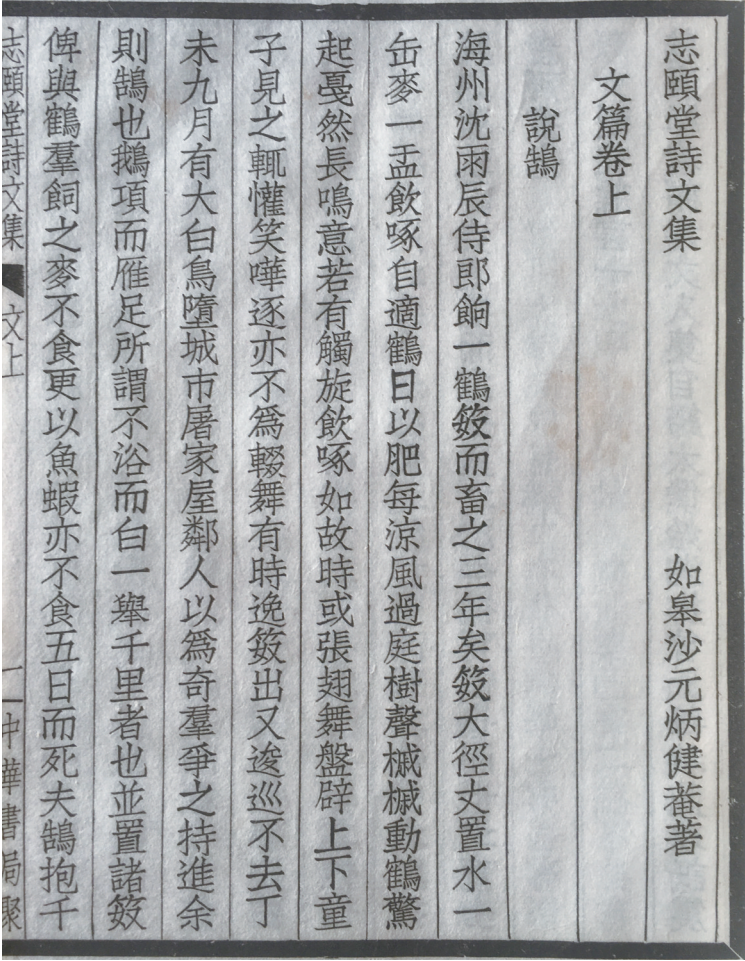 志頤堂詩文集 如皋沙元炳健菴著
文篇卷上
說鵠
海州沈雨辰侍郎餉一鶴笯而畜之三年矣笯大徑丈置水一
缶麥一盂飲啄自適鶴日以肥每涼風過庭樹聲槭槭動鶴驚
起戞然長鳴意若有觸旋飲啄如故時或張翅舞盤辟上下童
子見之輒懽笑嘩逐亦不爲輟舞有時逸笯出又逡巡不去丁
未九月有大白鳥墮城市屠家屋鄰人以爲奇羣爭之持進余
則鵠也鵝項而雁足所謂不浴而白一舉千里者也並置諸笯
俾與鶴羣飼之麥不食更以魚蝦亦不食五日而死夫鵠抱千
志頤堂詩文集 文上 一 中華書局聚